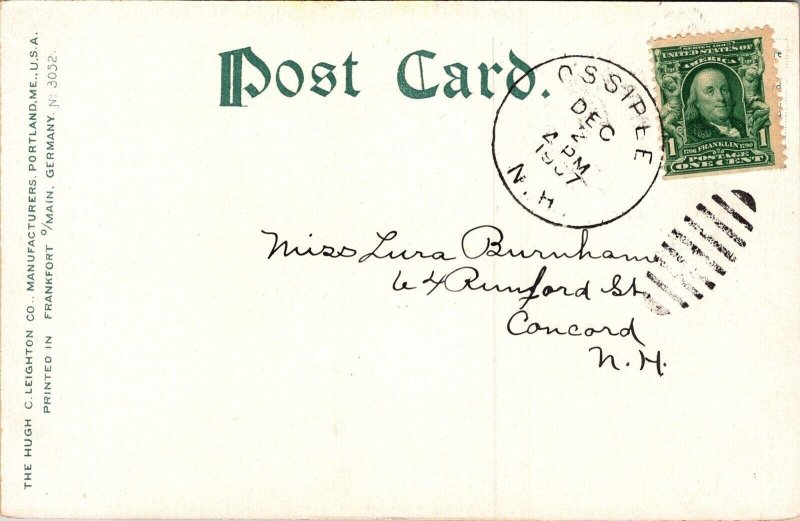 THE HUGH C. LEIGHTON CO., MANUFACTURERS, PORTLAND, ME., U.S.A.
PRINTED IN FRANKFORT o/MAIN, GERMANY. No 3052.
Post Card.
OSSIPEE
DEC
2
4 PM
1907
N.H.
SERIES 1902
UNITED STATES OF
AMERICA
1 1706 FRANKLIN 1790 1
POSTAGE
ONE CENT
Miss Lura Burnham
64 Rumford St
Concord
N.H.